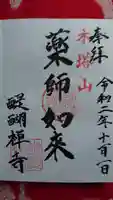 奉拝
令和二年十月一日
木塔山
薬師如来
醍醐禅寺